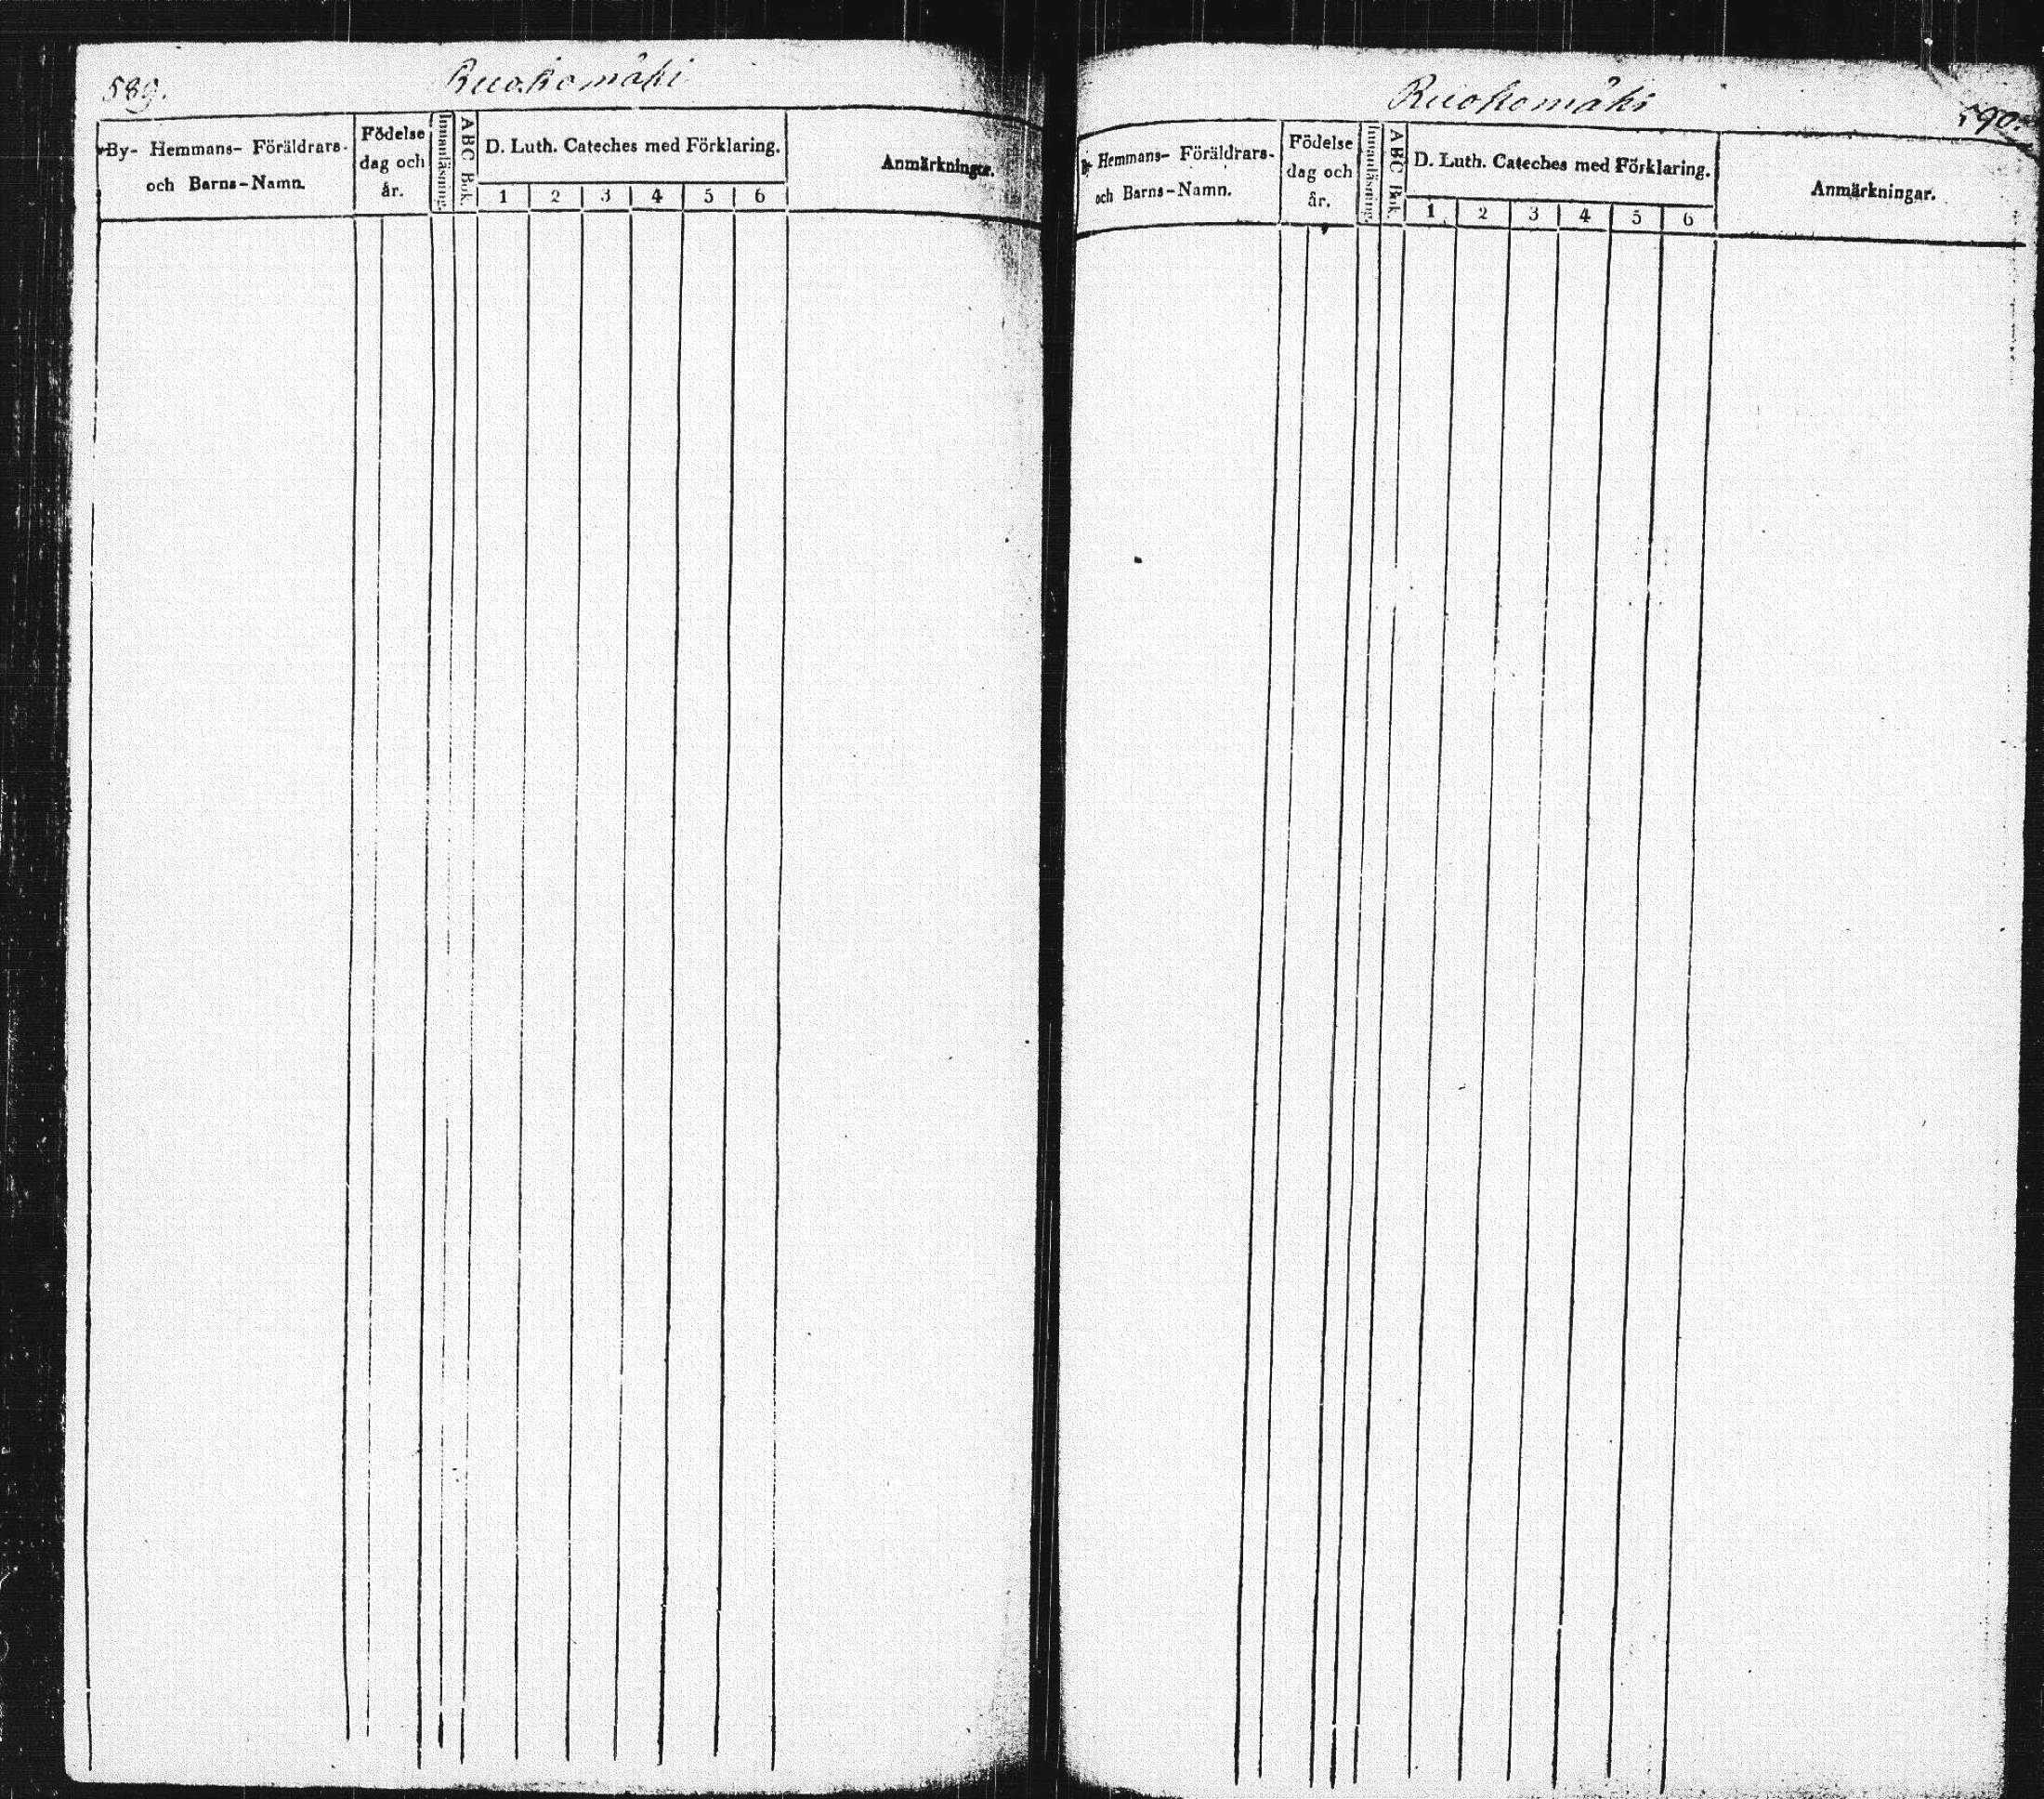 589.
Ruokomäki
By- Hemmans- Föräldrars-
och Barns-Namn.
Födelse
dag och
år.
Innanläsning.
ABC Bok.
D. Luth. Cateches med Förklaring.
1 2 3 4 5 6
Anmärkningar.
Ruokomäki
590.
By- Hemmans- Föräldrars-
och Barns-Namn.
Födelse
dag och
år.
Innanläsning.
ABC Bok.
D. Luth. Cateches med Förklaring.
1 2 3 4 5 6
Anmärkningar.